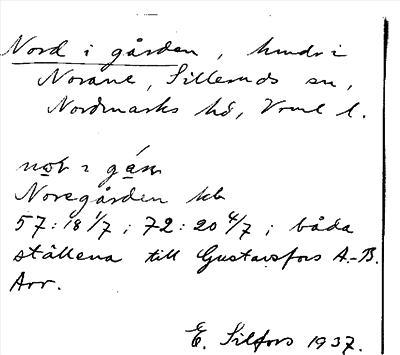 Nord i gården, hmdr i
Norane, Silleruds sn,
Nordmarks hd, Vrml l.
Noregården kb
57:18 1/7; 72:20 4/7; båda
ställena till Gustavsfors A.-B.
Arr.
E. Silfors 1937.